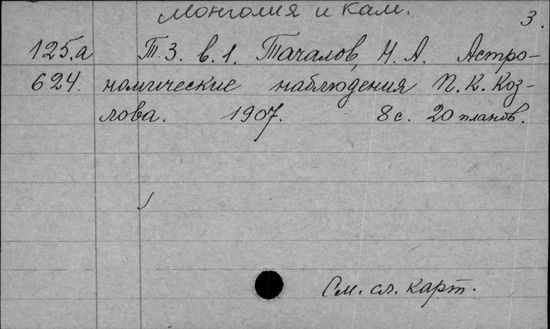 Монголия и Кам. 3.
125.а Т.3. в.1. Тачалов, Н. А. Астро-
624. номические наблюдения П. К. Коз-
лова. 1907. 8 с. 20 планов.
См. сл. карт.